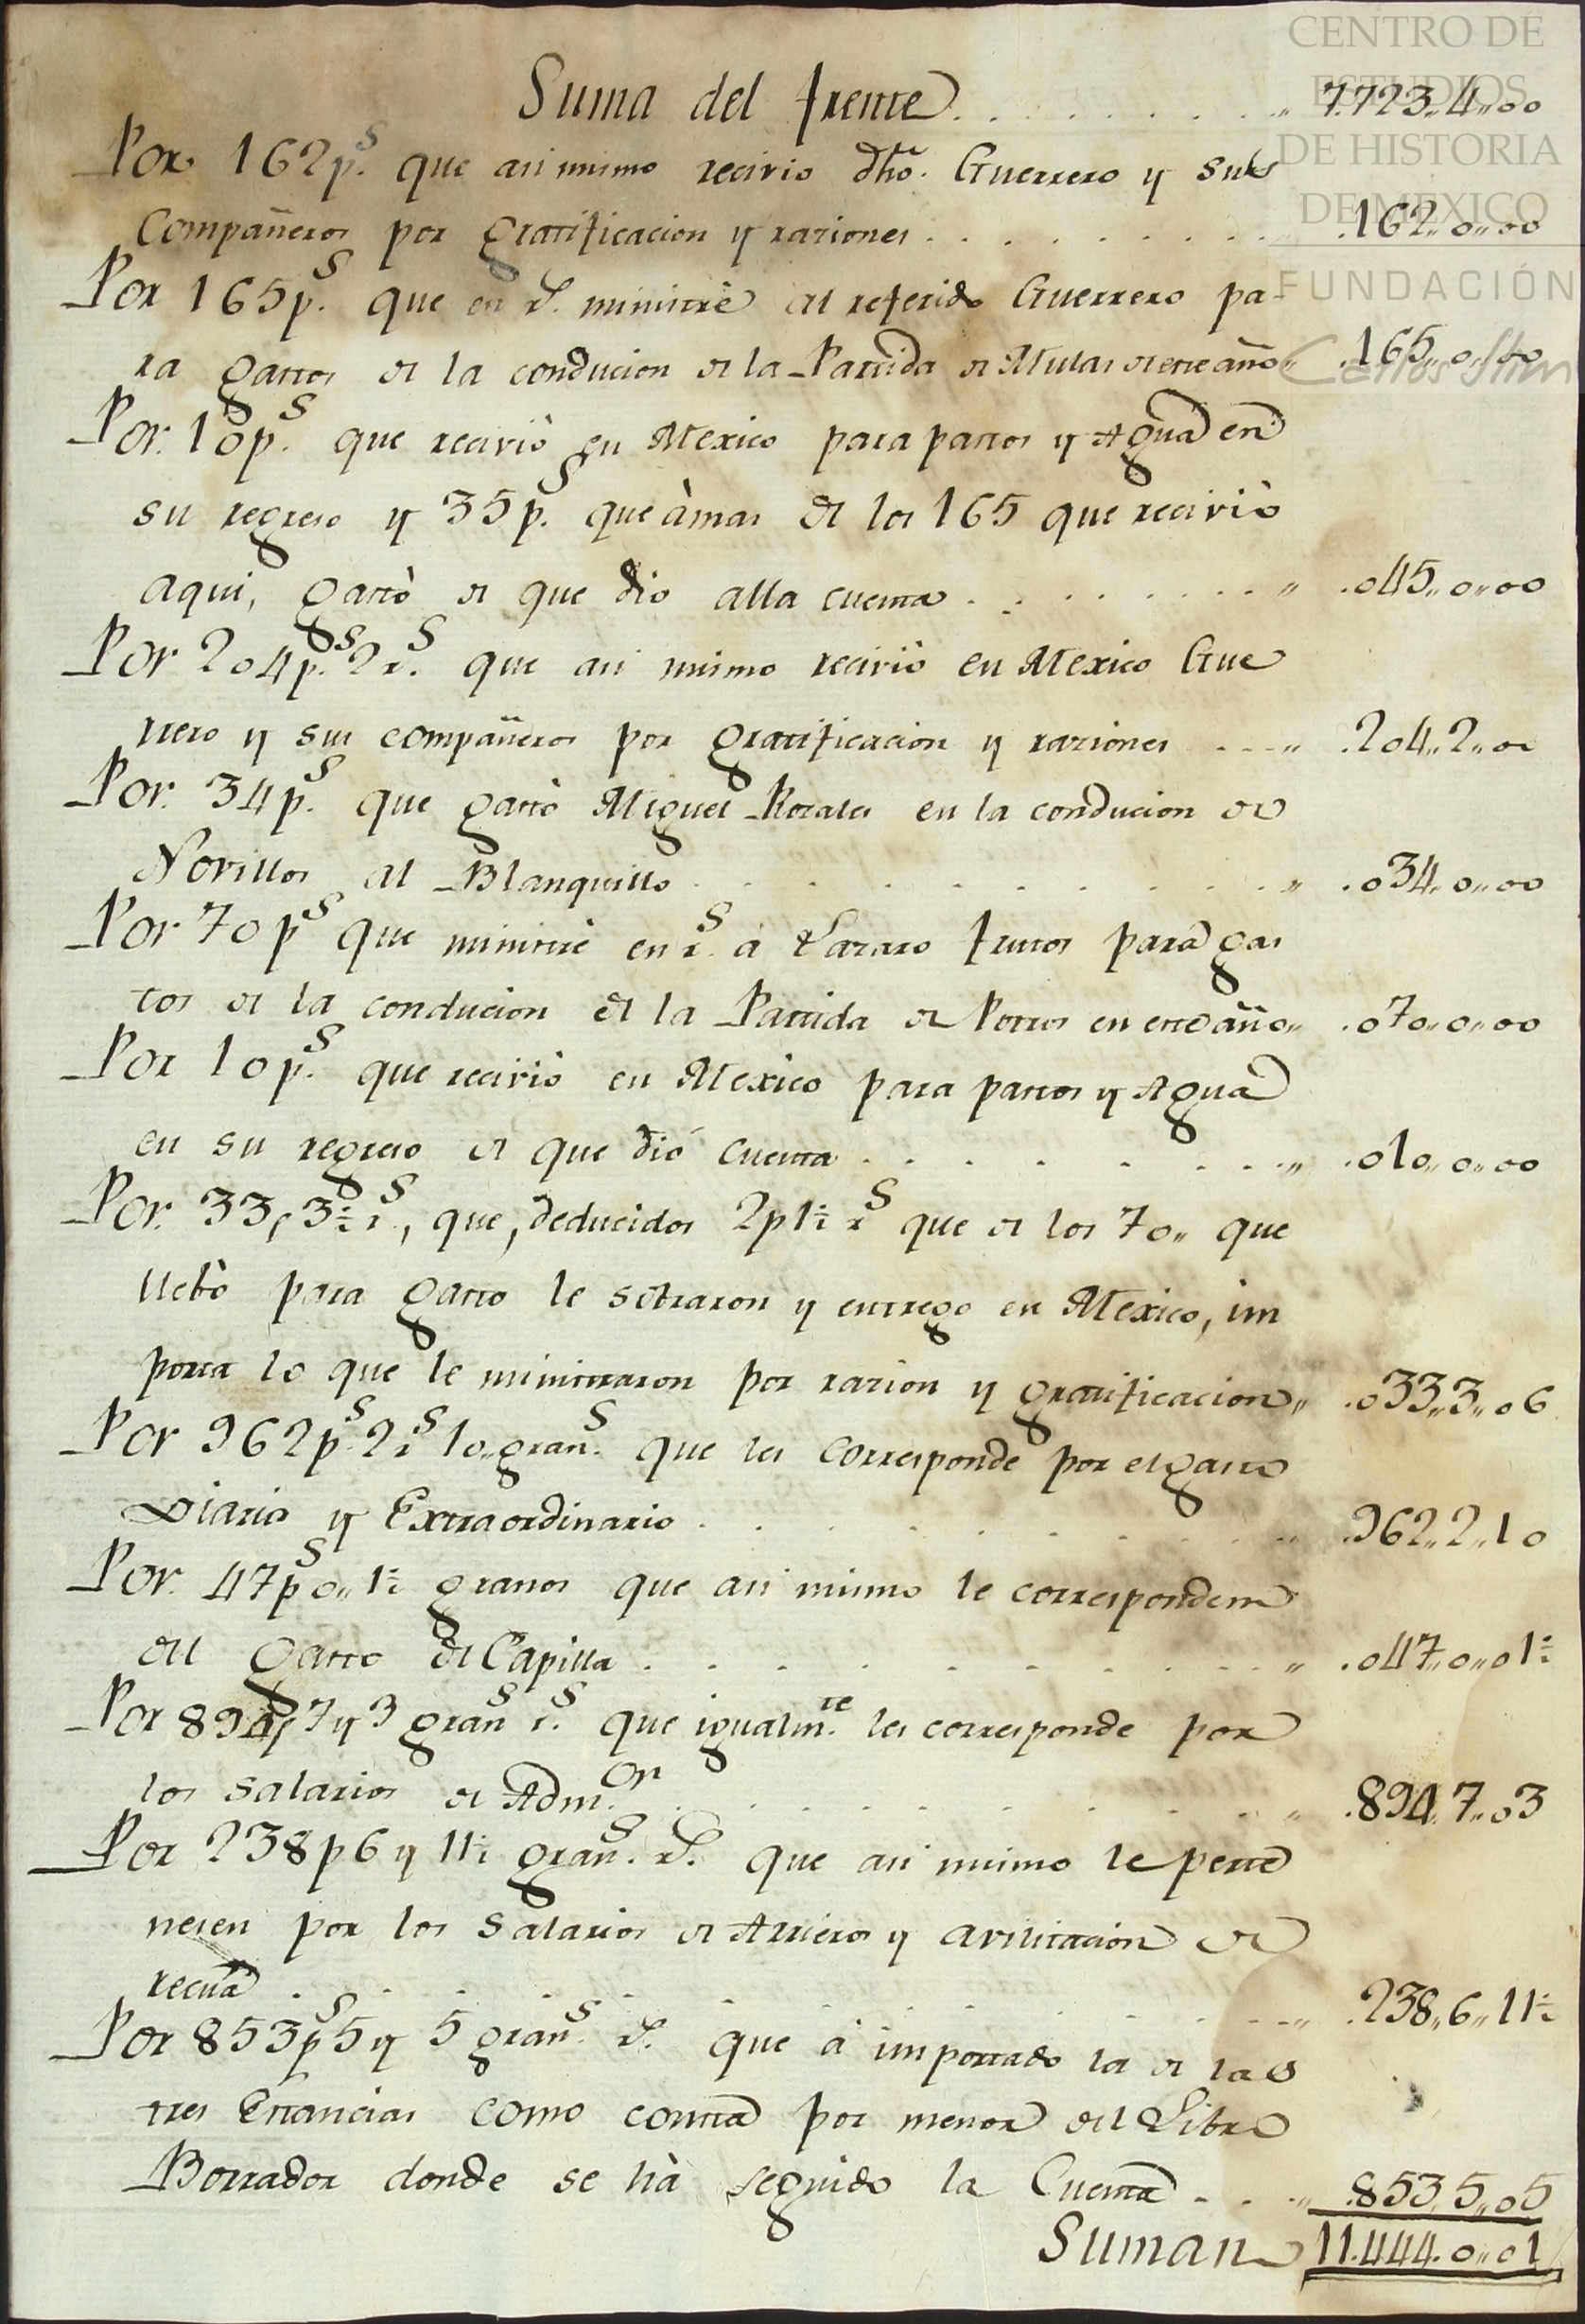 CENTRO DE
ESTUDIOS
DE HISTORIA
DE MEXICO
FUNDACIÓN
Carlos Slim
Suma del frente . . . . . . . . . „ 7.723„4„00
Por 162 p.s que asi mismo recivio dho. Guerrero y sus
Compañeros por gratificacion y raziones . . . . . . . . . .162„0„00
Por 165 p.s que en rl. ministrè al referido Guerrero pa-
ra gastos de la conducion de la Partida de Mulas de este año„ .165„0„00
Por. 10 p.s que recivió en Mexico para pastos y Agua en
su regreso y 35 p.s que àmas de los 165 que recivió
aqui, gastò de que dio alla cuenta . . . . . . . . „ .045„0„00
Por 204 p.s 2 r.s que asi mismo recivió en Mexico Gue
rrero y sus compañeros por gratificacion y raziones . . . „ .204„2„00
Por. 34 p.s que gastò Miguel Rosales en la conducion de
Novillos al Blanquillo . . . . . . . . . . „ .034„0„00
Por 70 p.s que ministrè en r.s a Lazaro frutos para gas
tos de la conducion de la Partida de Potros en este año„ .070„0„00
Por 10 p.s que recivió en Mexico para pastos y Agua
en su regreso de que dió cuenta . . . . . . . „ .010„0„00
Por. 33, 3½ r.s, que, deducidos 2 p 1½ r.s que de los 70„ que
llebò para gasto le sobraron y entrego en Mexico, im
porta lo que le ministraron por razion y gratificacion„ .033„3„06
Por 962 p.s 2 r.s 10„gran.s que les corresponde por el gasto
Diario y Extraordinario . . . . . . . . . „ .962„2„10
Por. 47 p.s 0„ 1½ granos que asi mismo le corresponden
del gasto de Capilla . . . . . . . . . . „ .047„0„01½
Por 894p, 7 y 3 gran.s r.s que igualm.te les corresponde por
los salarios de Adm.or . . . . . . . . . . „ .894„7„03
Por 238 p 6 y 11½ gran.s rl. que asi mismo le perte
nesen por los Salarios de Arrieros y avilitacion de
recua . . . . . . . . . . . . „ .238„6„11½
Por 853 p.s 5 y 5 gran.s rl. que à importado la de las
tres Estancias como consta por menor del Libro
Borrador donde se hà seguido la Cuenta . . . „ .853„5„05
Suman 11.444.0„01